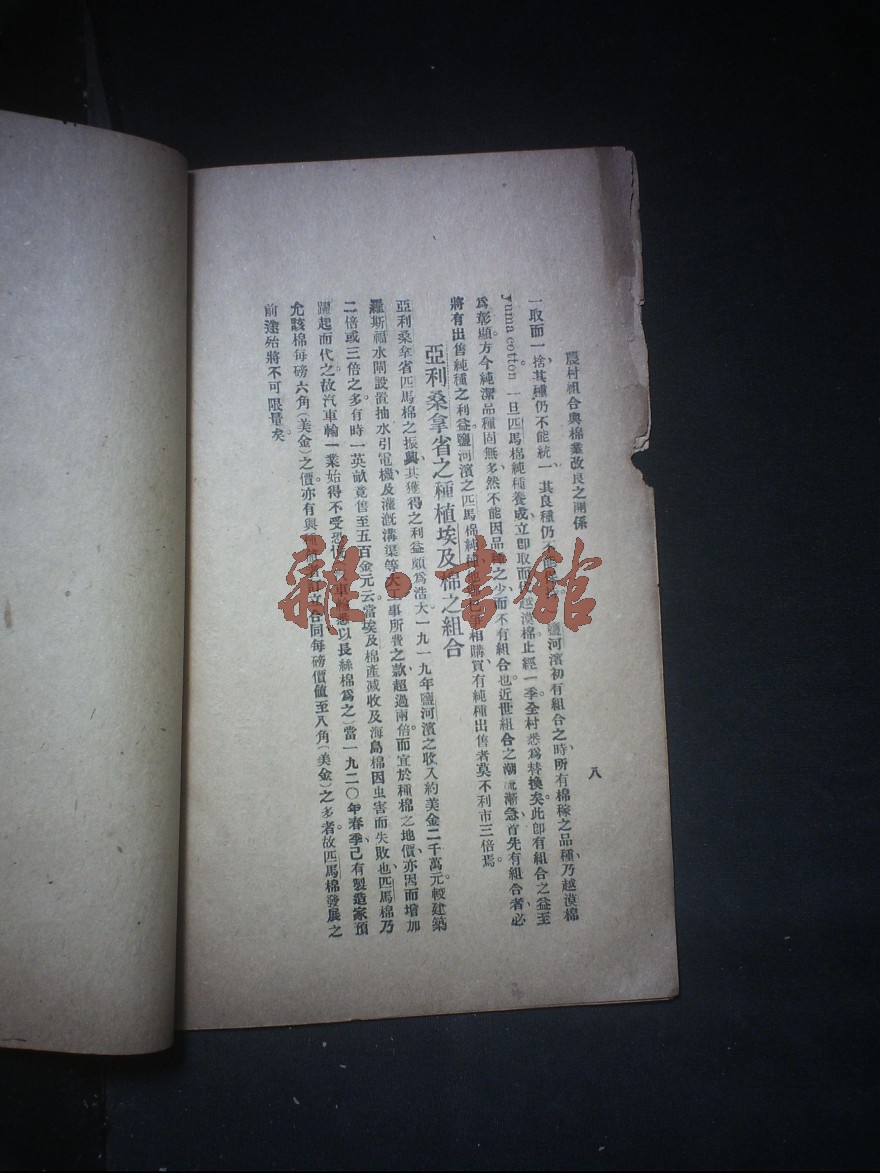 農村組合與棉業改良之關係
八
一取而一捨、其種仍不能統一、其良種仍不能 鹽河濱初有組合之時、所有棉稼之品種、乃越漠棉
yuma cotton 一旦匹馬棉純種養成、立卽取而 越漠棉。止經一季。全村悉爲替換矣。此卽有組合之益至
爲彰顯。方今純潔品種固無多、然不能因品種之少、而不有組合也。近世組合之潮流漸急、首先有組合者、必
將有出售純種之利益。鹽河濱之匹馬棉純種 相購買、有純種出售者莫不利市三倍焉。
亞利桑拿省之種植埃及棉之組合
亞利桑拿省匹馬棉之振興、其獲得之利益頗爲浩大、一九一九年鹽河濱之收入約美金二千萬元。較建築
羅斯福水閘設置抽水引電機及灌漑溝渠等大工事所費之款、超過兩倍。而宜於種棉之地價、亦因而增加
二倍或三倍之多。有時一英畝竟售至五百金元云。當埃及棉產減收及海島棉因虫害而失敗也、匹馬棉乃
躍起而代之。故汽車輪一業始得不受恐慌 車輪悉以長絲棉爲之)當一九二〇年春季、己有製造家預
允該棉每磅六角(美金)之價。亦有與種植者訂立合同每磅價値至八角(美金)之多者。故匹馬棉發展之
前途殆將不可限量矣。
雜·書館